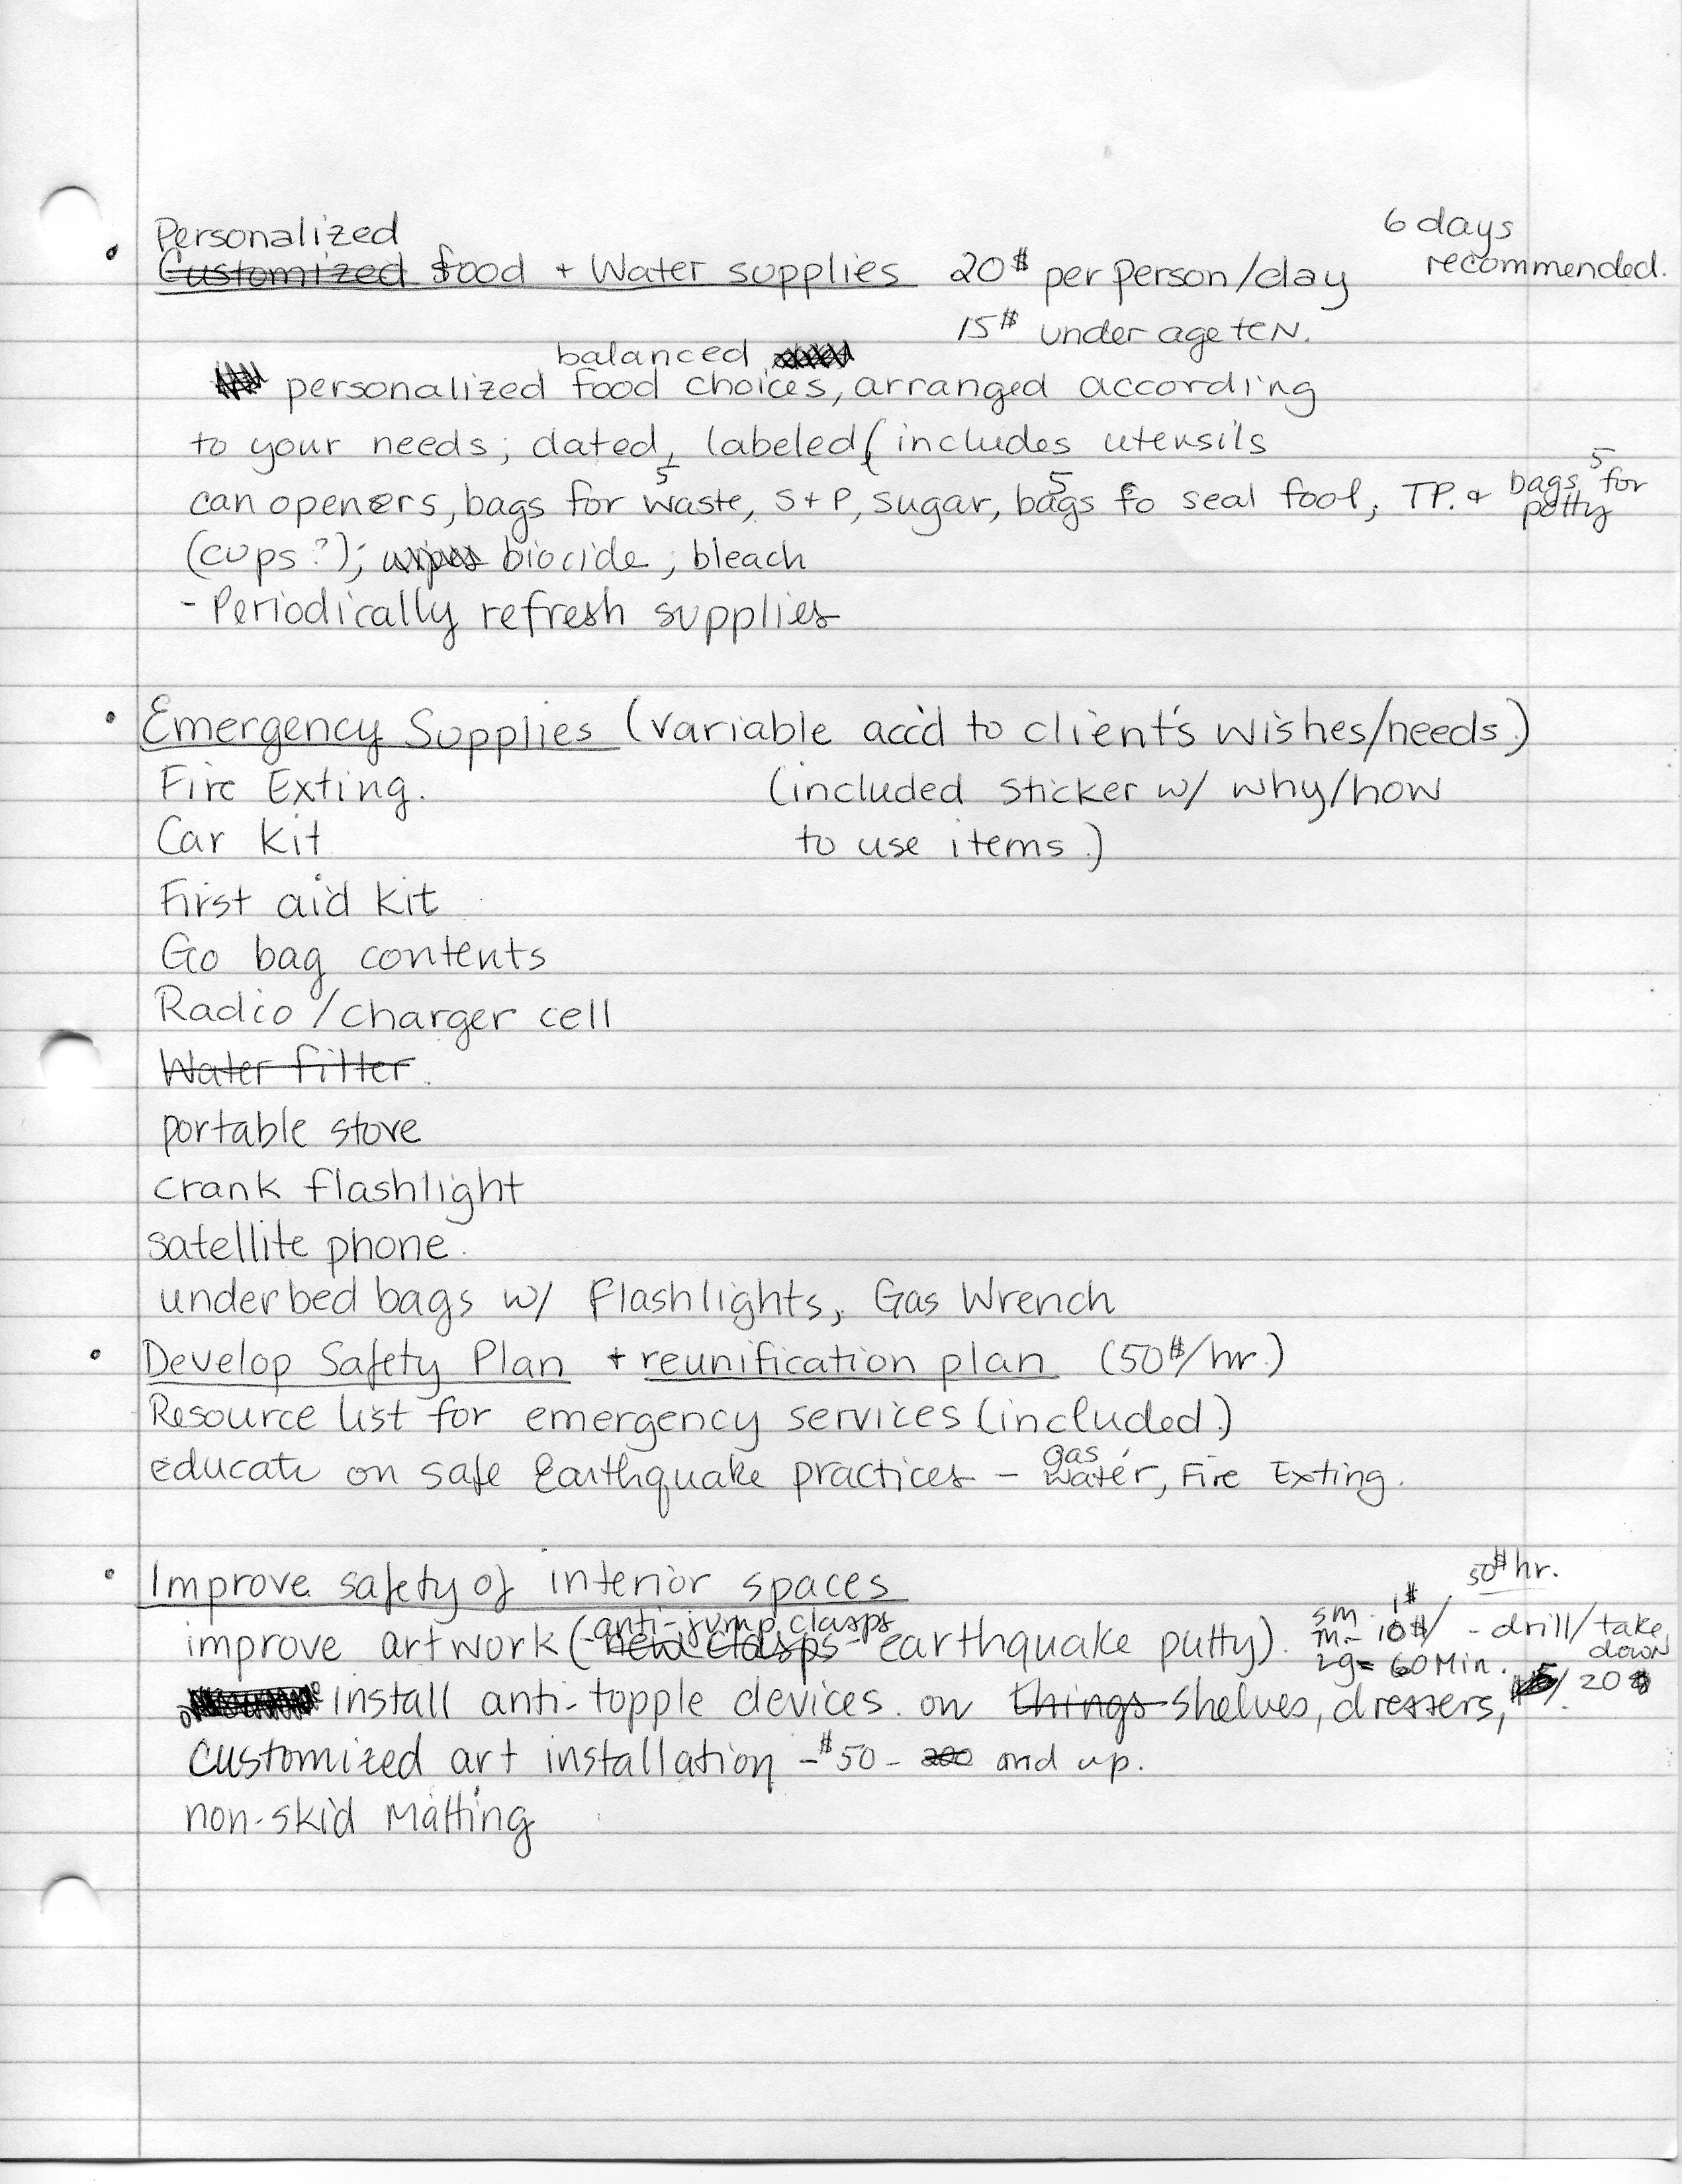 Personalized
6 days
Customized food + Water supplies 20$ per person/day recommended.
15$ under age teN.
balanced
personalized food choices, arranged according
to your needs; dated, labeled ( includes utensils
5 5 5
can openers, bags for waste, S+P, sugar, bags to seal food, TP. + bags for potty
(cups?); wipes biocide; bleach
- Periodically refresh supplies
Emergency Supplies (variable acc'd to client's wishes/needs.)
Fire Exting. (included sticker w/ why/how
Car kit to use items.)
First aid kit
Go bag contents
Radio / charger cell
Water filter.
portable stove
crank flashlight
satellite phone.
underbed bags w/ flashlights, Gas Wrench
Develop Safety Plan + reunification plan (50$/hr.)
Resource list for emergency services (included.)
gas
educate on safe Earthquake practices - water, Fire Exting.
50$ hr.
Improve safety of interior spaces
anti-jump clasps sm - 1$
improve artwork (- new clasps - earthquake putty). m - 10$/ - drill/take down
Lg = 60 Min.
install anti-topple devices. on things shelves, dressers, 20$
customized art installation - $50 - 200 and up.
non-skid matting